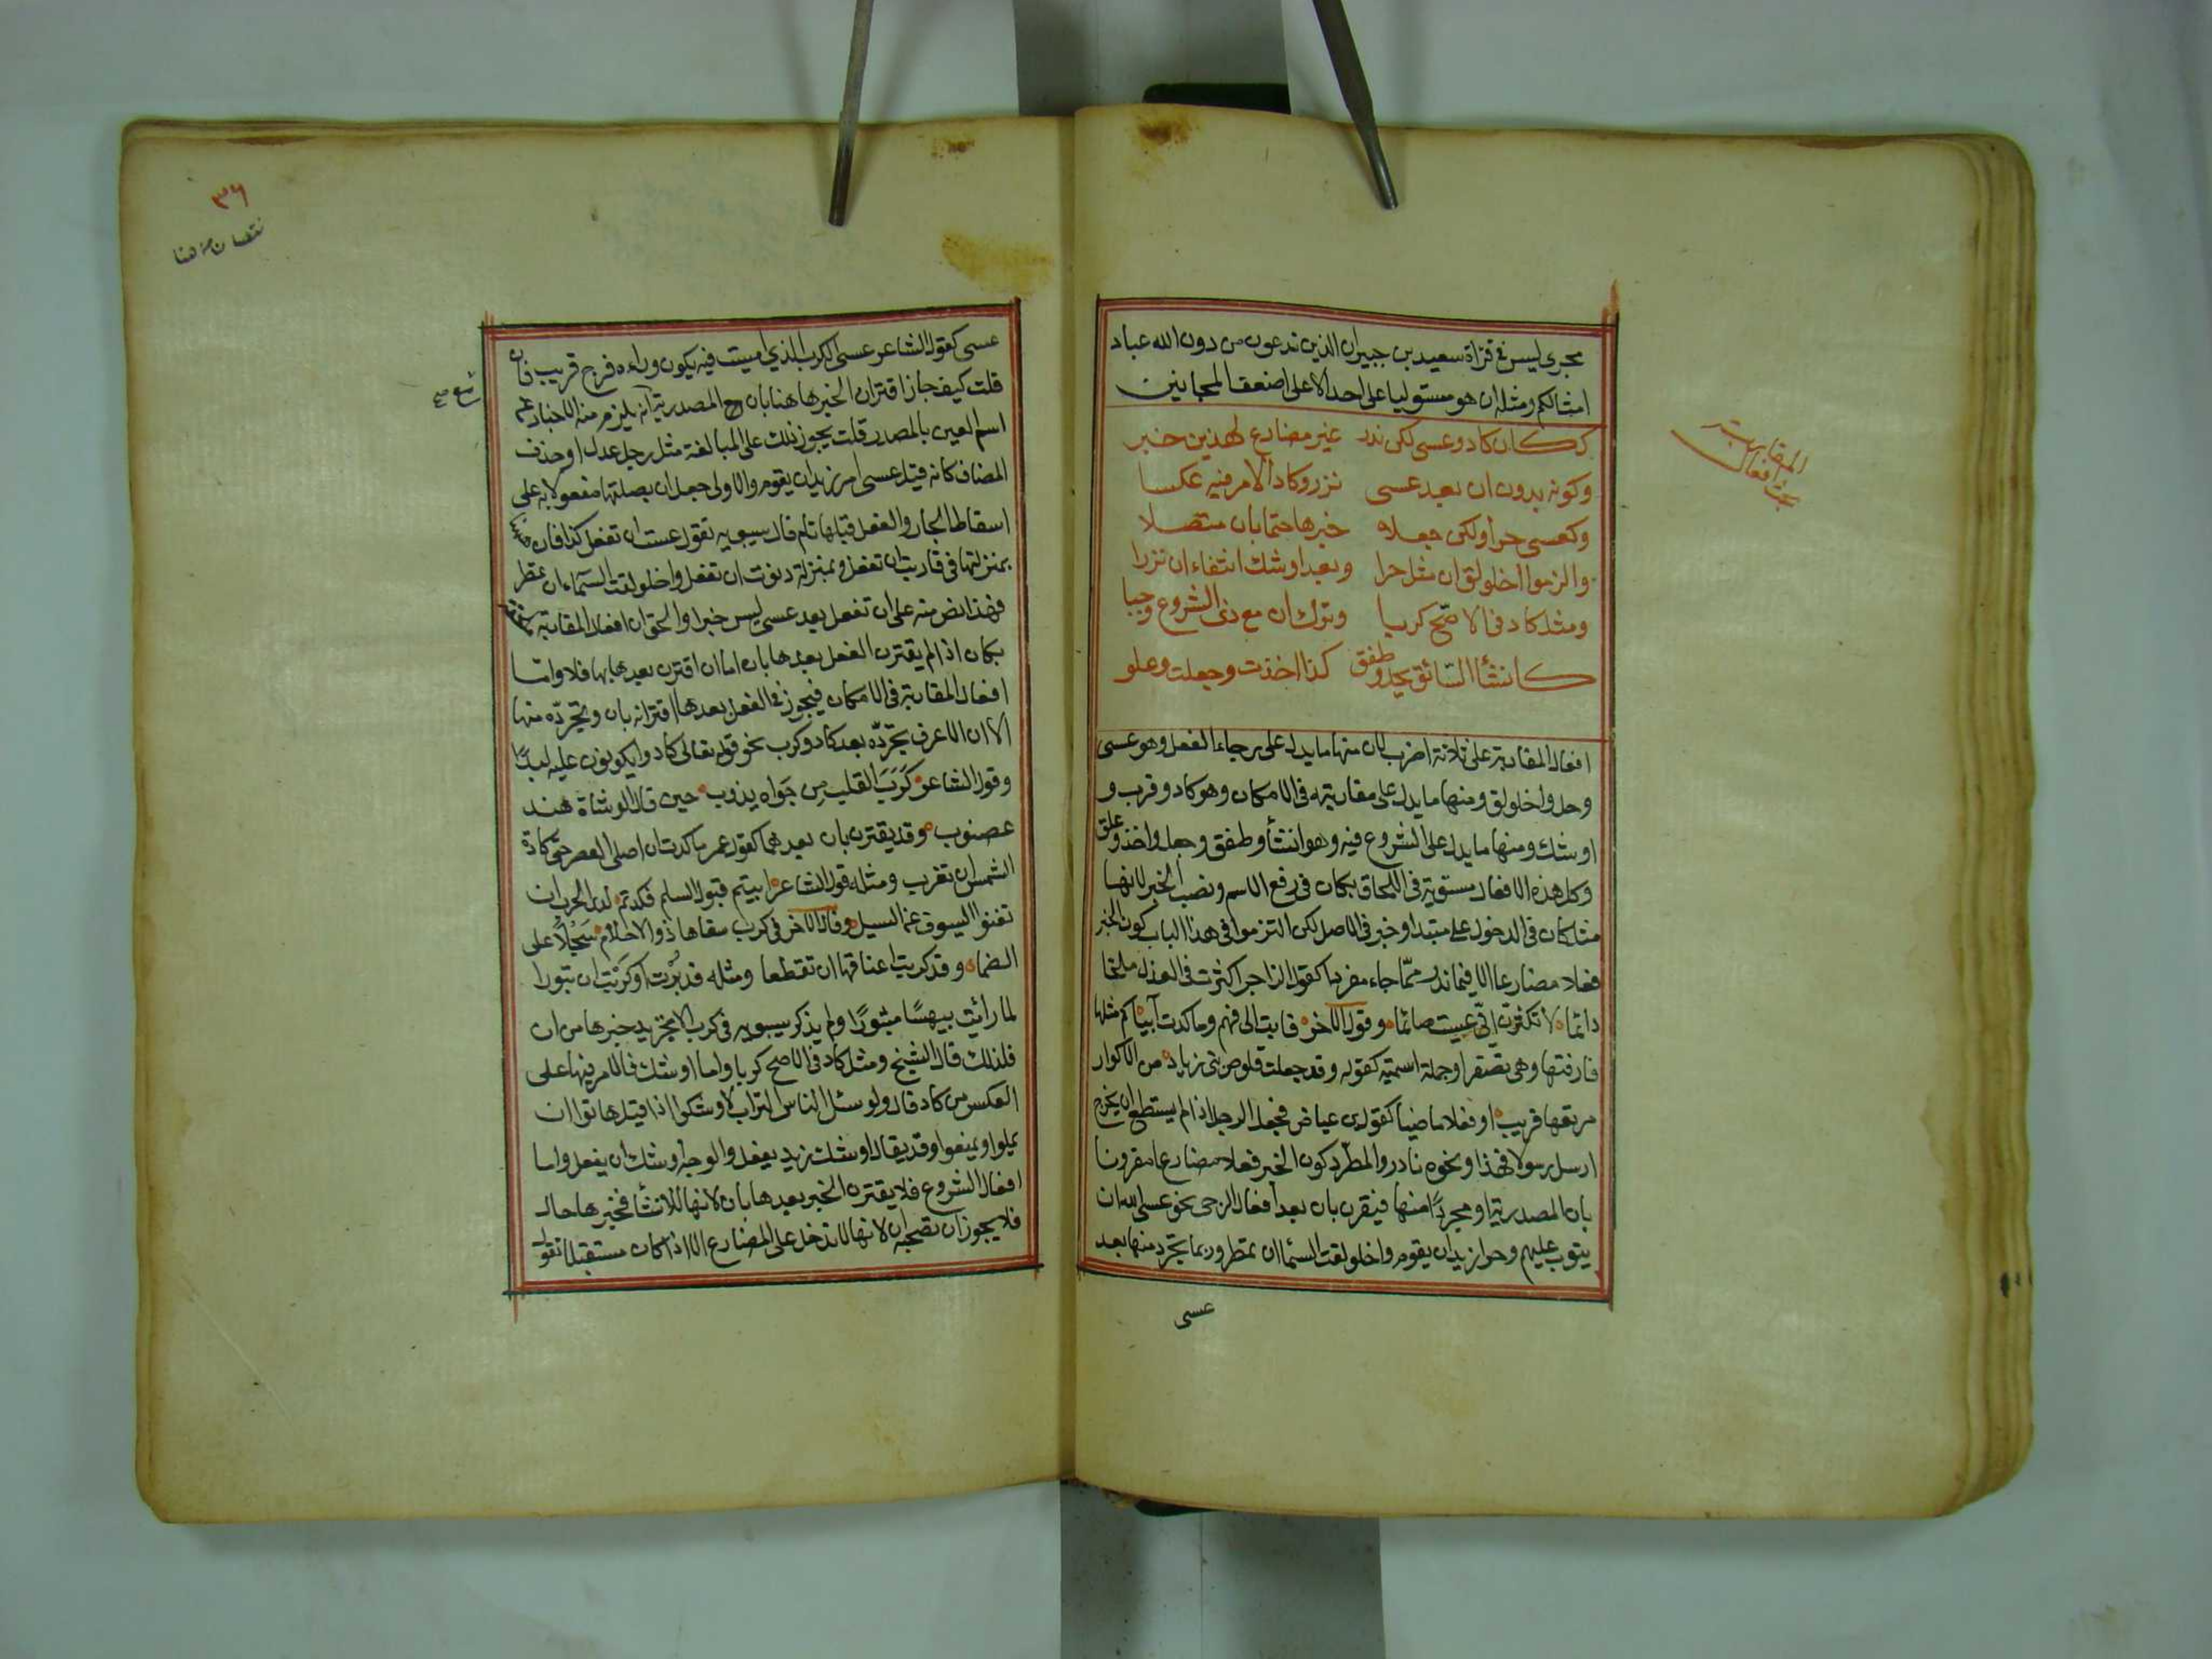 مجرى ليس في قرٰاة سعيد بن جبير ان الذين تدعون من دون الله عباد
امثالكم ومثله ان هو مستوليا على احد الا على اضعف المجانين
ككان كاد وعسى لكن ندر غير مضارع لهذين خبر
وكونه بدون ان بعد عسى نزر وكاد الامر فيه عكسا
وكعسى حرا ولكن جعلا خبرها حتما بان متصلا
والزموا اخلولق ان مثل حرا وبعد اوشك انتفاء ان نزرا
ومثل كاد في الاصح كربا وترك ان مع ذي الشروع وجبا
كانشأ السّائق يحدو وطفق كذا اخذت وجعلت وعلق
افعال المقاربة على ثلاثة اضرب لان منها ما يدل على رجاء الفعل وهو عسى
وحرا واخلولق ومنها ما يدل على مقاربته في الامكان وهو كاد وقرب و
اوشك ومنها ما يدل على الشروع فيه وهو انشأ وطفق وجعل واخذ وعلق
وكل هذه الافعال مستوية في اللحاق بكان في رفع الاسم ونصب الخبر لانها
مثل كان في الدخول على مبتدا وخبر في الاصل لكن التزموا في هذا الباب كون الخبر
فعلا مضارعا الا فيما ندر ممّا جاء مفردا كقول الراجز اكثرت في العذل ملحا
دائما لا تكثرن انّي عسيت صائما وقول الاخر فابت الى فهم وما كدت آيبا وكم مثلها
فارقتها وهي تصفر او جملة اسمية كقوله وقد جعلت قلوص بني زياد من الاكوار
مرتعها قريب او فعلا ماضيا كقول ابن عباس فجعل الرجل اذا لم يستطع ان يخرج
ارسل رسولا فهذا ونحوه نادر والمطرد كون الخبر فعلا مضارعا مقرونا
بان المصدرية او مجردًا منها فيقرن بان بعد افعال الرجى نحو عسى الله ان
يتوب عليهم وحرا زيد ان يقوم واخلولقت السّماء ان تمطر وربما تجرد منها بعد
عسى
المقاربة
بحث افعال
٣٦
نقصان من هنا
عسى كقول الشاعر عسى الكرب الذي امسيت فيه يكون وراءه فرج قريب فان
قلت كيف جاز اقتران الخبر هاهنا بان المصدرية انه يلزم منه الاخبار عن
اسم العين بالمصدر قلت يجوز ذلك على المبالغة مثل رجل عدل او حذف
المضاف كانه قيل عسى امر زيد ان يقوم والاولى جعل ان بصلتها مفعولا به على
اسقاط الجار والفعل قبلها تام قال سيبويه تقول عسيت ان تفعل كذا فان
بمنزلتها في قاربت ان تفعل وبمنزلة دنوت ان تفعل واخلولقت السّماء ان تمطر
فهذا نص منه على ان تفعل بعد عسى ليس خبرا والحق ان افعال المقاربة
بكان اذا لم يقترن الفعل بعدها بان اما ان اقترن بعدها بها فلا واما
افعال المقاربة في الامكان فيجوز في الفعل بعدها اقترانه بان وتجرّده منها
الا ان الاعرف تجرّده بعد كاد وكرب نحو قوله تعالى كادوا يكونون عليه لبدًا
وقول الشاعر كَرَبَ القلب من جَواه يذوب حين قال الوشاة هند
عضوب وقد يقترن بان بعدهما كقول عمر ما كدت ان اصلى العصر حتى كادت
الشمس ان تغرب ومثله قول الشاعر ابيتم قبول السلم فكدتم لدى الحرب ان
تغنوا السيوف عن السيل وقال الاخر في كرب سقاها ذو الاحلام سَجْلًا على
الضماء وقد كربت اعناقها ان تقطعا ومثله قد بُرْت او كَرَبْت ان تبورا
لما رأيت بيهسًا مثبورًا ولم يذكر سيبويه في كرب الا تجريد خبرها من ان
فلذلك قال الشيخ ومثل كاد في الاصح كربا واما اوشك فالامر فيها على
العكس من كاد قال ولو سئل الناس التراب لاوشكوا اذا قيل هاتوا ان
يملوا ويمنعوا وقد يقال اوشك زيد يفعل والوجه اوشك ان يفعل واما
افعال الشروع فلا يقترن الخبر بعدها بان لانها للانشأ فخبرها حال
فلا يجوز ان تصحبه ان لانها لا تدخل على المضارع الا اذا كان مستقبلا تقول